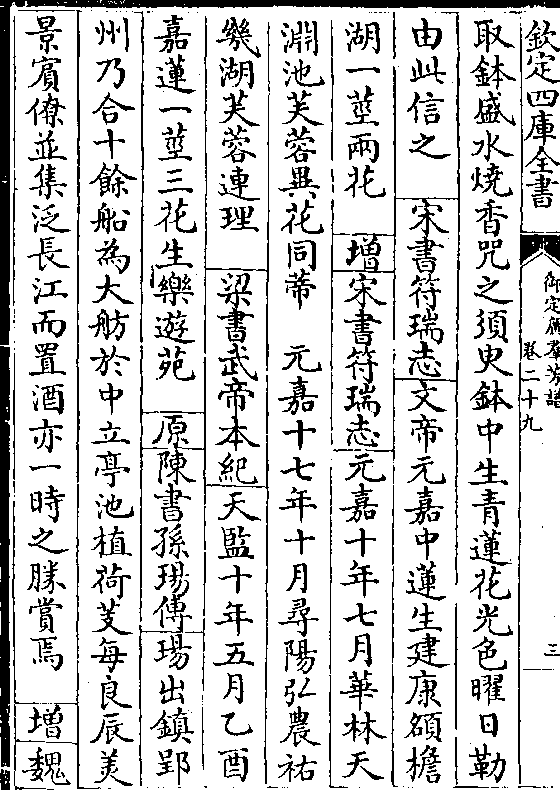 欽定四庫全書
御定廣羣芳譜
卷二十九
三
取鉢盛水燒香咒之須臾鉢中生青蓮花光色曜日勒
由此信之 宋書符瑞志文帝元嘉中蓮生建康頟檐
湖一莖兩花 增宋書符瑞志元嘉十年七月華林天
淵池芙蓉異花同蔕 元嘉十七年十月尋陽弘農祐
幾湖芙蓉連理 梁書武帝本紀天監十年五月乙酉
嘉蓮一莖三花生樂遊苑 原陳書孫瑒傳瑒出鎮郢
州乃合十餘船為大舫於中立亭池植荷芰每良辰美
景賓僚並集泛長江而置酒亦一時之勝賞焉 增魏